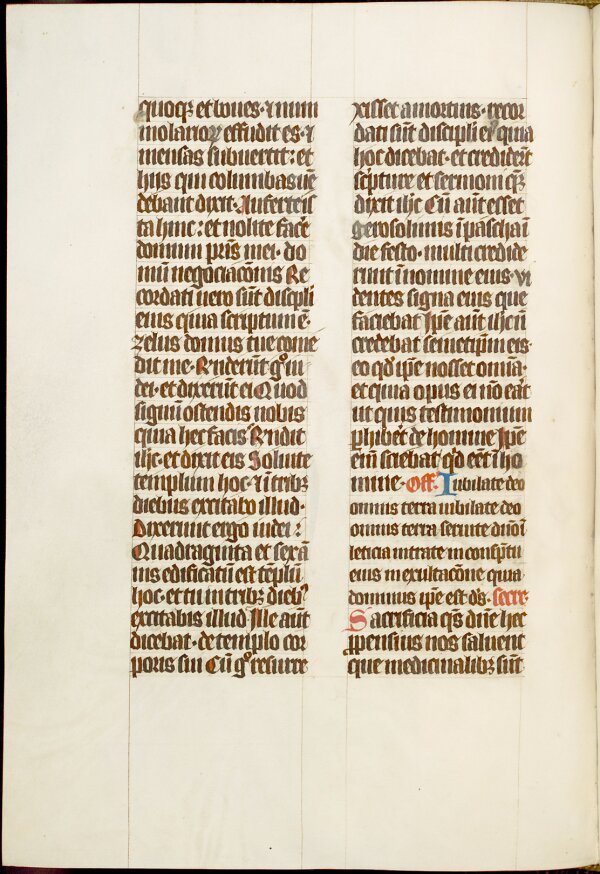 quoqꝫ et boues · ⁊ num
mulariorꝝ effudit es · ⁊
mensas subuertit : et
hijs qui columbas uē
debant dixit · Auferte is
ta hinc : et nolite face
domum pr̄is mei · do
mū negociacōnis Re
cordati uero sūt discipli
eius quia scriptum ē ·
zelus domus tue come
dit me · Rn̄derūt gͦ iu
dei · et dixerūt ei Quod
signū ostendis nobis
quia hec facis Rn̄dit
ih̄c · et dixit eis Soluite
templum hoc · ⁊ ī tribꝫ
diebus excitabo illud ·
Dixerunt ergo iudei :
Quadraginta et sex ā
nis edificatū est tēplū
hoc · et tu in tribꝫ diebꝰ
excitabis illud · Ille aūt
dicebat · de templo cor
poris sui Cū gͦ resurre
xisset a mortuis · recor
dati sūt discipli eiꝰ quia
hoc dicebat · et credider̄t
sc̄pture et sermoni qͫꝫ
dixit ih̄c Cū aūt esset
gerosolimis ī pascha ī
die festo · multi credide
runt ī nomine eius · vi
dentes signa eius que
faciebat Ip̄e aūt ih̄c nō
credebat semetip̄m eis ·
eo qd̓ ip̄e nosset om̄ia ·
et quia opus ei nō eāt
ut quis testimonium
ꝑhibēt de homine Ip̄e
eī sciebat qd̓ eēt ī ho
mine · Off. Iubilate deo
omnis terra iubilate deo
omnis terra seruite dn̄o ī
leticia intrate in conspc̄tu
eius in exultacōne quia
dominus ip̄e est ds̄ · secre ·
Sacrificia qs̄ dn̄e hec
ꝓpensius nos saluent
que medicinalibꝫ sūt